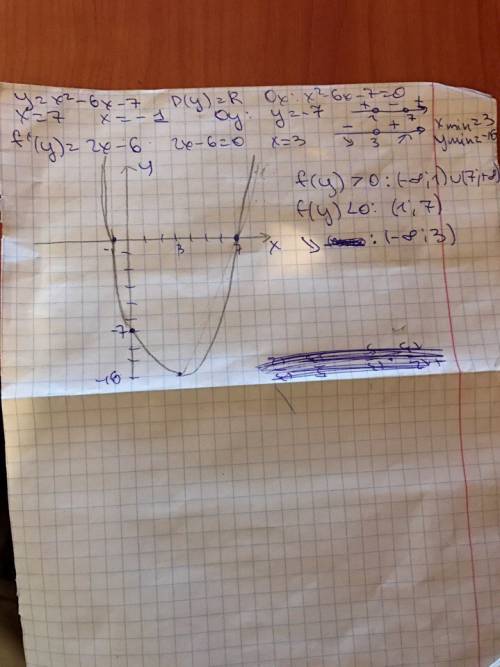 y=x²-6x-7 D(y)=R Ox: x²-6x-7=0
x=7 x=-1 Oy: y=-7 + - +
1 7
f'(y)=2x-6 2x-6=0 x=3 - + 3 ↘ ↗ xmin=3
ymin=-16
f(y)>0: (-∞;1)∪(7;+∞)
f(y)<0: (1;7)
↘ : (-∞;3)
y
-1 3 7 x
-7
-16